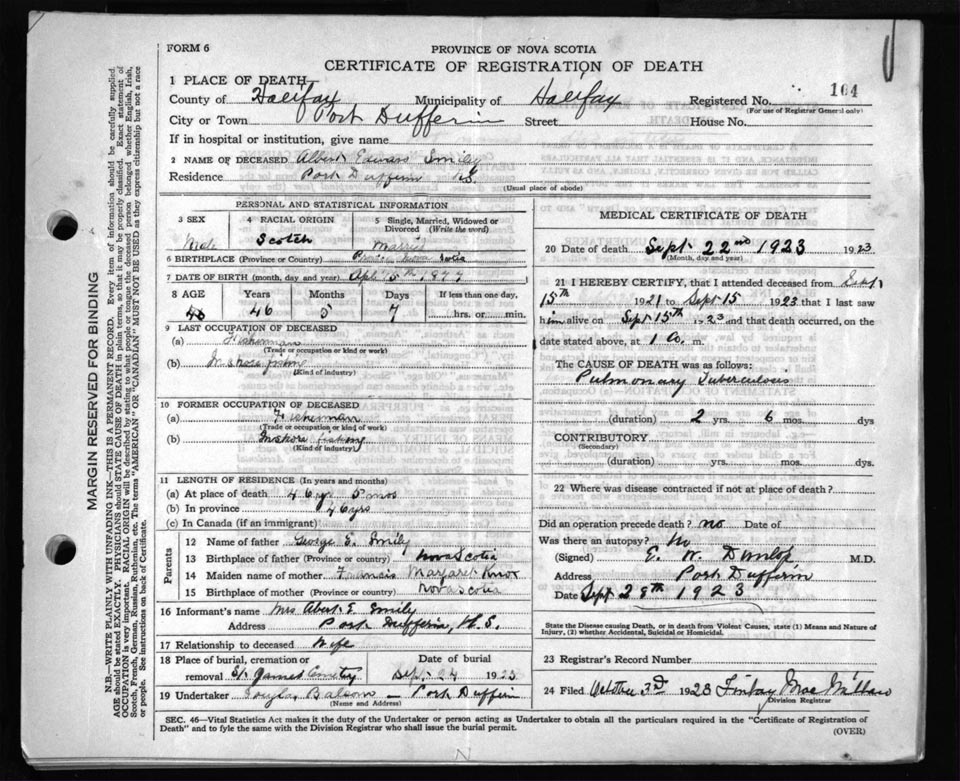 FORM 6
PROVINCE OF NOVA SCOTIA
CERTIFICATE OF REGISTRATION OF DEATH
104
1 PLACE OF DEATH
County of Halifax Municipality of Halifax Registered No.
(For use of Registrar General only)
City or Town Port Dufferin Street House No.
If in hospital or institution, give name
2 NAME OF DECEASED Albert Edward Smily
Residence Port Dufferin N.S.
(Usual place of abode)
PERSONAL AND STATISTICAL INFORMATION
3 SEX 4 RACIAL ORIGIN 5 Single, Married, Widowed or Divorced (Write the word)
Male Scotch Married
6 BIRTHPLACE (Province or Country) Nova Scotia
7 DATE OF BIRTH (month, day and year) Apl 15th 1877
8 AGE Years Months Days If less than one day,
46 5 7 hrs. or min.
9 LAST OCCUPATION OF DECEASED
(a) Fisherman
(Trade or occupation or kind of work)
(b) Inshore fishing
(Kind of industry)
10 FORMER OCCUPATION OF DECEASED
(a) Fisherman
(Trade or occupation or kind of work)
(b) Inshore fishing
(Kind of industry)
11 LENGTH OF RESIDENCE (In years and months)
(a) At place of death 46 yr 5 mos
(b) In province 46 yrs
(c) In Canada (if an immigrant)
Parents
12 Name of father George E. Smily
13 Birthplace of father (Province or country) Nova Scotia
14 Maiden name of mother Francis Margaret Knox
15 Birthplace of mother (Province or country) Nova Scotia
16 Informant's name Mrs Abert E. Smily
Address Port Dufferin, N.S.
17 Relationship to deceased Wife
18 Place of burial, cremation or removal St. James Cemetry
Date of burial Sept. 24 1923
19 Undertaker Balsom - Port Dufferin
(Name and Address)
MEDICAL CERTIFICATE OF DEATH
20 Date of death Sept 22nd 1923 1923
(Month, day and year)
21 I HEREBY CERTIFY, that I attended deceased from Sept
15th 1921 to Sept 15 1923 that I last saw
him alive on Sept 15th 1923 and that death occurred, on
date stated above, at 1 a. m.
The CAUSE OF DEATH was as follows:
Pulmonary Tuberculosis
(duration) 2 yrs 6 mos. dys
CONTRIBUTORY
(Secondary)
(duration) yrs. mos. dys.
22 Where was disease contracted if not at place of death?
Did an operation precede death? no Date of
Was there an autopsy? No
(Signed) E. W. Dunlop M.D.
Address Port Dufferin
Date Sept 28th 1923
State the Disease causing Death, or in death from Violent Causes, state (1) Means and Nature of Injury, (2) whether Accidental, Suicidal or Homicidal.
23 Registrar's Record Number
24 Filed October 3rd 1923 Finlay MacMillan
Division Registrar
SEC. 46—Vital Statistics Act makes it the duty of the Undertaker or person acting as Undertaker to obtain all the particulars required in the "Certificate of Registration of
Death" and to fyle the same with the Division Registrar who shall issue the burial permit.
(OVER)
MARGIN RESERVED FOR BINDING
N.B.—WRITE PLAINLY WITH UNFADING INK—THIS IS A PERMANENT RECORD. Every item of information should be carefully supplied.
AGE should be stated EXACTLY. PHYSICIANS should STATE CAUSE OF DEATH in plain terms, so that it may be properly classified. Exact statement of
OCCUPATION is very important. RACIAL ORIGIN will be described by stating to what people or tongue the deceased person belonged whether English, Irish,
Scotch, French, German, Russian, Ruthenian, etc. The terms "AMERICAN" OR "CANADIAN" MUST NOT BE USED as they express citizenship but not a race
or people. See instructions on back of Certificate.